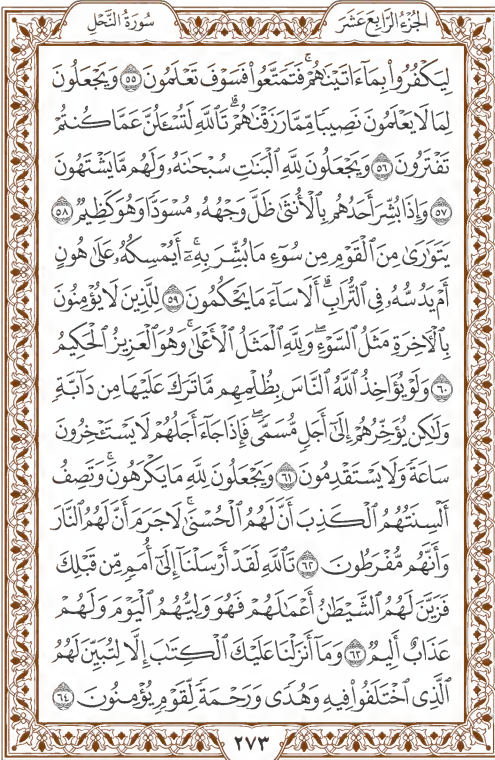 الجُزْءُ الرَّابِعَ عَشَرَ
سُورَةُ النَّحْلِ
لِيَكْفُرُواْ بِمَآ ءَاتَيْنَٰهُمْۚ فَتَمَتَّعُواْ فَسَوْفَ تَعْلَمُونَ ٥٥ وَيَجْعَلُونَ
لِمَا لَا يَعْلَمُونَ نَصِيبًا مِّمَّا رَزَقْنَٰهُمْۗ تَٱللَّهِ لَتُسْـَٔلُنَّ عَمَّا كُنتُمْ
تَفْتَرُونَ ٥٦ وَيَجْعَلُونَ لِلَّهِ ٱلْبَنَٰتِ سُبْحَٰنَهُۥ وَلَهُم مَّا يَشْتَهُونَ
٥٧ وَإِذَا بُشِّرَ أَحَدُهُم بِٱلْأُنثَىٰ ظَلَّ وَجْهُهُۥ مُسْوَدًّا وَهُوَ كَظِيمٌ ٥٨
يَتَوَٰرَىٰ مِنَ ٱلْقَوْمِ مِن سُوٓءِ مَا بُشِّرَ بِهِۦٓۚ أَيُمْسِكُهُۥ عَلَىٰ هُونٍ
أَمْ يَدُسُّهُۥ فِى ٱلتُّرَابِۗ أَلَا سَآءَ مَا يَحْكُمُونَ ٥٩ لِلَّذِينَ لَا يُؤْمِنُونَ
بِٱلْأَخِرَةِ مَثَلُ ٱلسَّوْءِۖ وَلِلَّهِ ٱلْمَثَلُ ٱلْأَعْلَىٰۚ وَهُوَ ٱلْعَزِيزُ ٱلْحَكِيمُ
٦٠ وَلَوْ يُؤَاخِذُ ٱللَّهُ ٱلنَّاسَ بِظُلْمِهِم مَّا تَرَكَ عَلَيْهَا مِن دَآبَّةٍ
وَلَٰكِن يُؤَخِّرُهُمْ إِلَىٰٓ أَجَلٍ مُّسَمًّىۖ فَإِذَا جَآءَ أَجَلُهُمْ لَا يَسْتَـْٔخِرُونَ
سَاعَةً وَلَا يَسْتَقْدِمُونَ ٦١ وَيَجْعَلُونَ لِلَّهِ مَا يَكْرَهُونَۚ وَتَصِفُ
أَلْسِنَتُهُمُ ٱلْكَذِبَ أَنَّ لَهُمُ ٱلْحُسْنَىٰۚ لَا جَرَمَ أَنَّ لَهُمُ ٱلنَّارَ
وَأَنَّهُم مُّفْرَطُونَ ٦٢ تَٱللَّهِ لَقَدْ أَرْسَلْنَآ إِلَىٰٓ أُمَمٍ مِّن قَبْلِكَ
فَزَيَّنَ لَهُمُ ٱلشَّيْطَٰنُ أَعْمَٰلَهُمْ فَهُوَ وَلِيُّهُمُ ٱلْيَوْمَ وَلَهُمْ
عَذَابٌ أَلِيمٌ ٦٣ وَمَآ أَنزَلْنَا عَلَيْكَ ٱلْكِتَٰبَ إِلَّا لِتُبَيِّنَ لَهُمُ
ٱلَّذِى ٱخْتَلَفُواْ فِيهِ وَهُدًى وَرَحْمَةً لِّقَوْمٍ يُؤْمِنُونَ ٦٤
٢٧٣